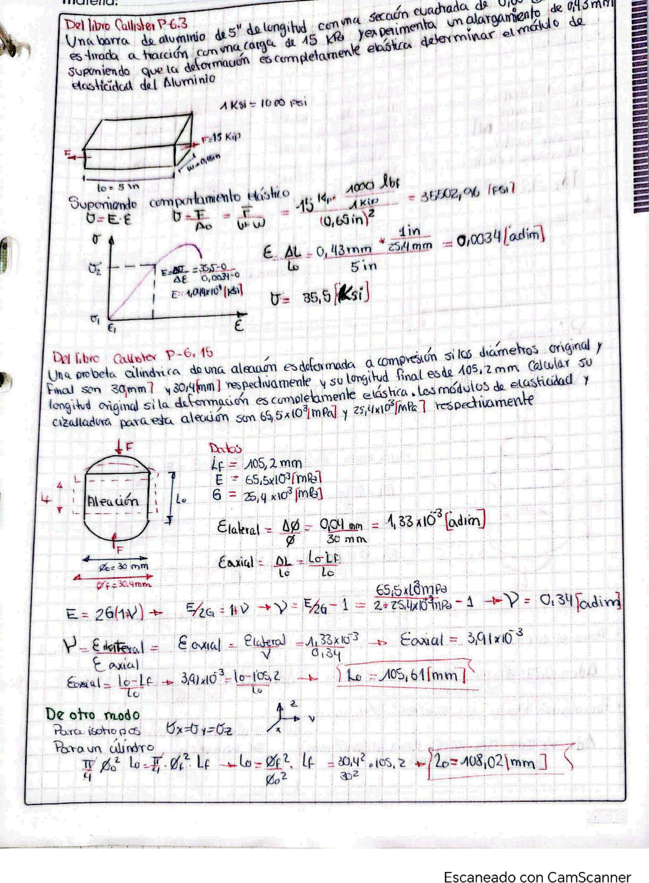 materia:
Del libro Callister P 6.3
Una barra de aluminio de 5" de longitud con una sección cuadrada de 0,6
es tirada a tracción con una carga de 15 KPs y experimenta un alargamiento de 0,43 mm
Suponiendo que la deformación es completamente elástica determinar el módulo de
elasticidad del Aluminio
1 Ksi = 1000 psi
F=15 Kip
F
lo = 5 in
Suponiendo comportamiento elástico
σ=E·ε σ=F/Ao = F/W·W = 15 Kip· 1000 lbf/1Kip / (0,65in)² = 35502,96 [PSI]
σ
σ2
E=Δσ/Δε = 35,5-0/0,0034-0
σ1 ε1 ε
ε ΔL/Lo = 0,43mm * 1in/25,4mm / 5in = 0,0034[adim]
σ = 35,5[Ksi]
Del libro Callister P-6.15
Una probeta cilindrica de una aleación es deformada a compresión si los diámetros original y
Final son 30[mm] y 30,4[mm] respectivamente y su longitud final es de 105,2 mm Calcular su
longitud original si la deformación es completamente elástica. Los módulos de elasticidad y
cizalladura para esta aleación son 65,5x10³[mPa] y 25,4x10³[mPa] respectivamente
F
Datos
Lf = 105,2 mm
E = 65,5x10³[mPa]
G = 25,4x10³[mPa]
L
Lf Aleación Lo
F
Øo=30 mm
Øf=30.4mm
Elateral = ΔØ/Ø = 0,04 mm/30 mm = 1,33x10⁻³[adim]
Eaxial = ΔL/Lo = Lo-Lf/Lo
E = 2G(1+ν) → E/2G = 1+ν → ν = E/2G - 1 = 65,5x10³mPa/2*25,4x10³mPa - 1 → ν = 0,34[adim]
ν = Elateral/Eaxial = Eaxial = Elateral/ν = 1,33x10⁻³/0,34 → Eaxial = 3,91x10⁻³
Eaxial = lo-Lf/Lo → 3,91x10⁻³ = lo-105,2/Lo → Lo = 105,61[mm]
De otro modo
Para isotropos σx=σy=σz
z
x y
Para un cilindro
π/4 Øo² Lo = π/4·Øf²·Lf → Lo = Øf²/Øo²·Lf = 30,4²/30²·105,2 → Lo=108,02[mm]
Escaneado con CamScanner